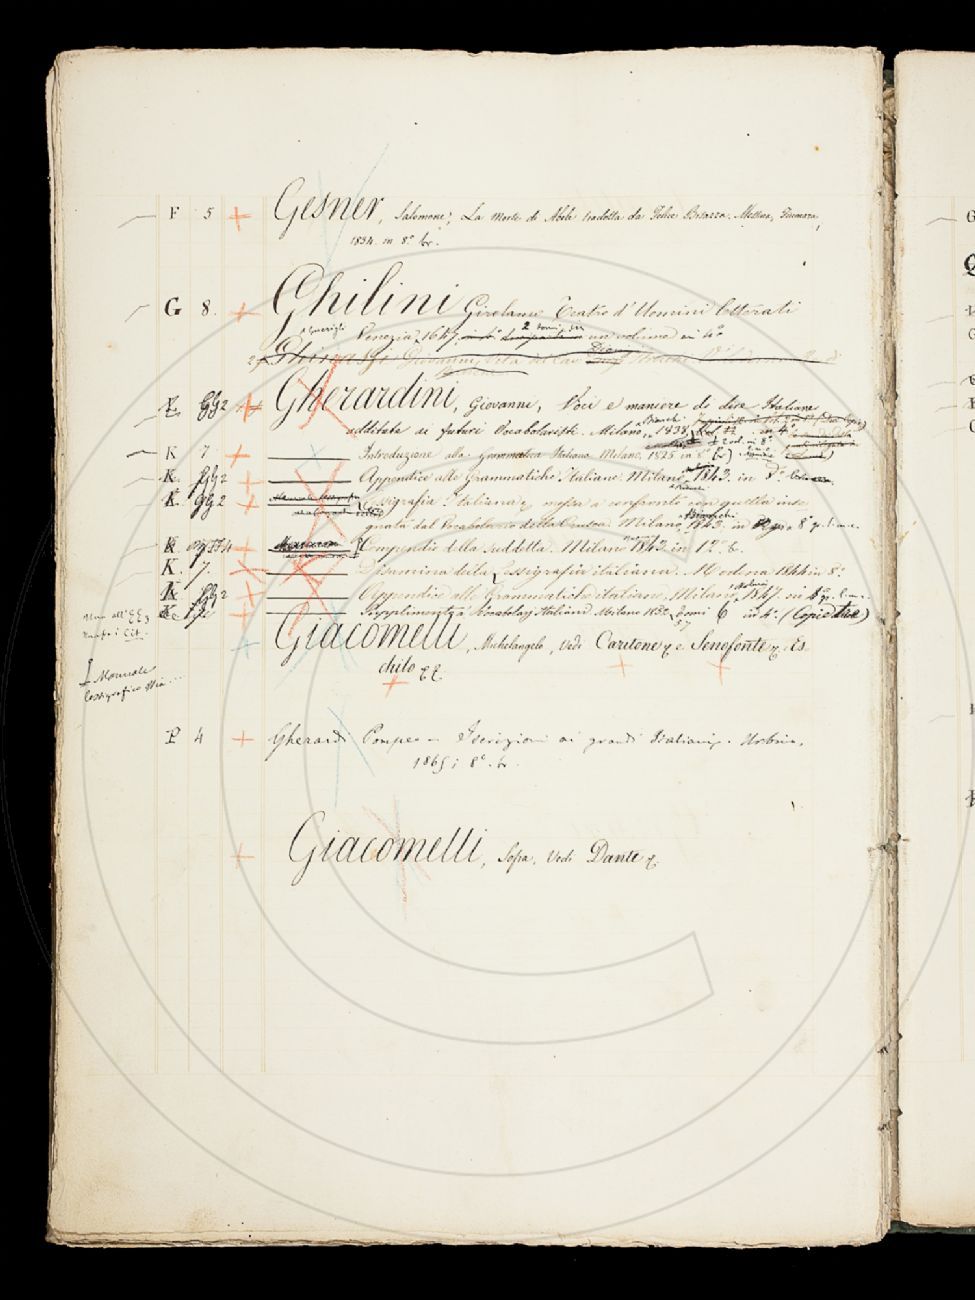 F 5 + Gesner, Salomone, La Morte di Abele tradotta da Felice Bisazza. Messina, Fiumara,
1834. in 8.° br.
G 8. + Ghilini Girolamo Teatro d'Uomini letterati
Venezia, 1647. 2 tomi in un volume in 4°
Gherardini, Giovanni, Voci e maniere di dire Italiane
additate ai futuri Vocabolaristi. Milano, Bianchi 1838, in 4.°
K 7 + Introduzione alla Grammatica Italiana. Milano, 1825. in 8.° br.
K. GG2 + Appendice alle Grammatiche Italiane. Milano, 1843. in 8.°
K. GG2 + Lessigrafia Italiana, messa a confronto con quella inse-
gnata dal Vocabolario della Crusca. Milano, Bianchi 1843. in 8°
K. + Compendio della suddetta. Milano 1843. in 12.° b.
K. 7. Disamina della Lessigrafia italiana. Modena 1844 in 8.°
K GG2 + Appendice alle Grammatiche italiane. Milano, 1847. in 8.°
K. Supplimento a' Vocabolarj Italiani. Milano 1852 57 tomi 6 in 4.° (Copie due)
Giacomelli, Michelangelo, Vedi Caritone, e Senofonte, Es
chilo
Manuale
Lessigrafico
P 4 + Gherardi Pompeo = Iscrizioni ai grandi Italiani. Urbino,
1865; 8.° br.
+ Giacomelli, Sofia. Vedi Dante